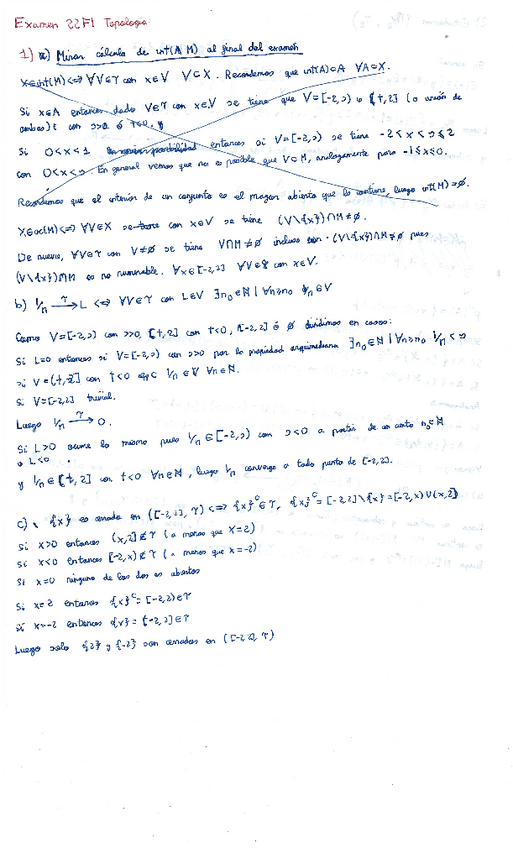 Examen 22F1 Topología
1) a) Mirar cálculo de int(A M) al final del examen
X∈int(M) <=> ∀V∈τ con x∈V V⊂X. Recordemos que int(A)⊂A ∀A⊂X.
Si x∈A entonces dado V∈τ con x∈V se tiene que V=[-2,s) o (t,2] (o unión de
ambos) t con s>0 ó t<0. y
Si 0<x<1 entonces si V=[-2,s) se tiene -2<x<s≤2
con 0<x<s. En general vemos que no es posible que V⊂M, analogamente para -1≤x≤0.
Recordemos que el interior de un conjunto es el mayor abierto que lo contiene, luego int(M)=∅.
X∈ac(M) <=> ∀V∈X se tiene con x∈V se tiene (V\{x})∩M≠∅.
De nuevo, ∀V∈τ con V≠∅ se tiene V∩M≠∅ incluso son (V\{x})∩M≠∅ pues
(V\{x})∩M es no numerable. ∀x∈[-2,2] ∀V∈τ con x∈V.
b) 1/n τ→ L <=> ∀V∈τ con L∈V ∃n₀∈ℕ | ∀n≥n₀ 1/n∈V
Como V=[-2,s) con s>0, (t,2] con t<0, [-2,2] ó ∅ dividimos en casos:
Si L=0 entonces si V=[-2,s) con s>0 por la propiedad arquimediana ∃n₀∈ℕ | ∀n≥n₀ 1/n<s
si V=(t,2] con t<0 1/n∈V ∀n∈ℕ.
Si V=[-2,2] trivial.
Luego 1/n τ→ 0.
Si L>0 ocurre lo mismo pues 1/n∈[-2,s) con s<0 a partir de un cierto n₀∈ℕ
o L<0.
y 1/n∈(t,2] con t<0 ∀n∈ℕ, luego 1/n converge a todo punto de [-2,2].
c) {x} es cerrado en ([-2,2], τ) <=> {x}ᶜ∈τ, {x}ᶜ=[-2,2]\{x}=[-2,x)∪(x,2]
Si x>0 entonces (x,2]∉τ (a menos que x=2)
Si x<0 entonces [-2,x)∉τ (a menos que x=-2)
Si x=0 ninguno de los dos es abierto
Si x=2 entonces {x}ᶜ=[-2,2)∈τ
Si x=-2 entonces {x}ᶜ=(-2,2]∈τ
Luego solo {2} y {-2} son cerrados en ([-2,2], τ)